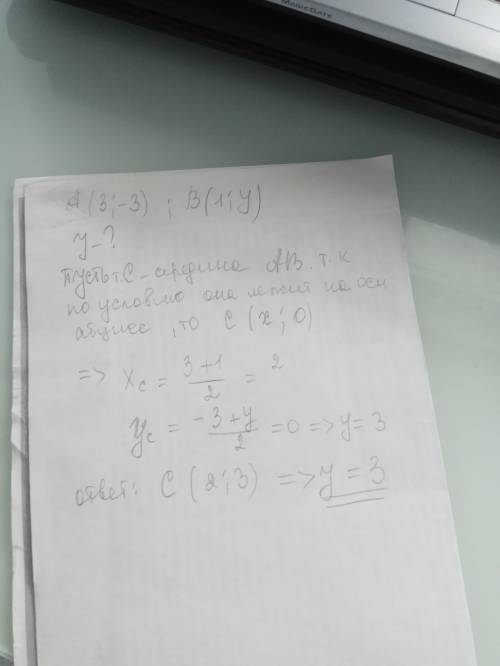 MAGICGATE
A (3;-3) ; B(1; y)
y - ?
Пусть т. C - середина AB. т. к
по условию она лежит на оси
абцисс, то C (x; 0)
=> xc = 3+1/2 = 2
yc = -3+y/2 = 0 => y = 3
ответ: C (2; 3) => y = 3